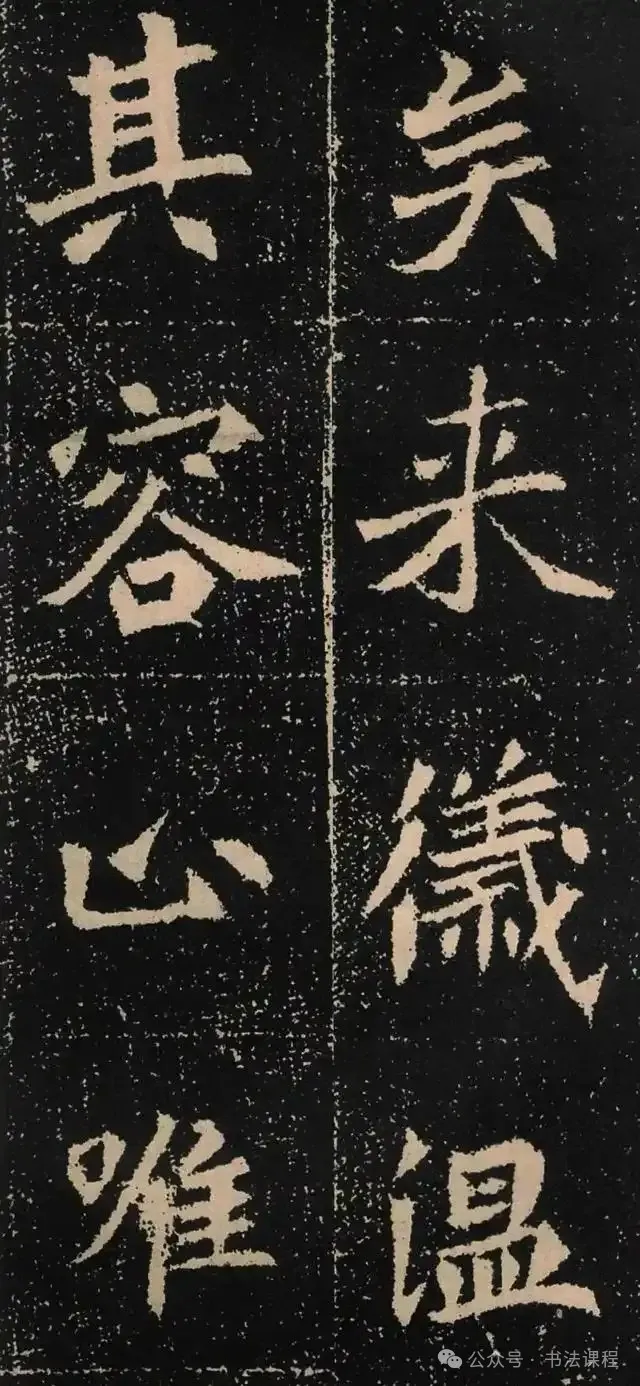 矣来儀温
其容止唯
公众号 · 书法课程